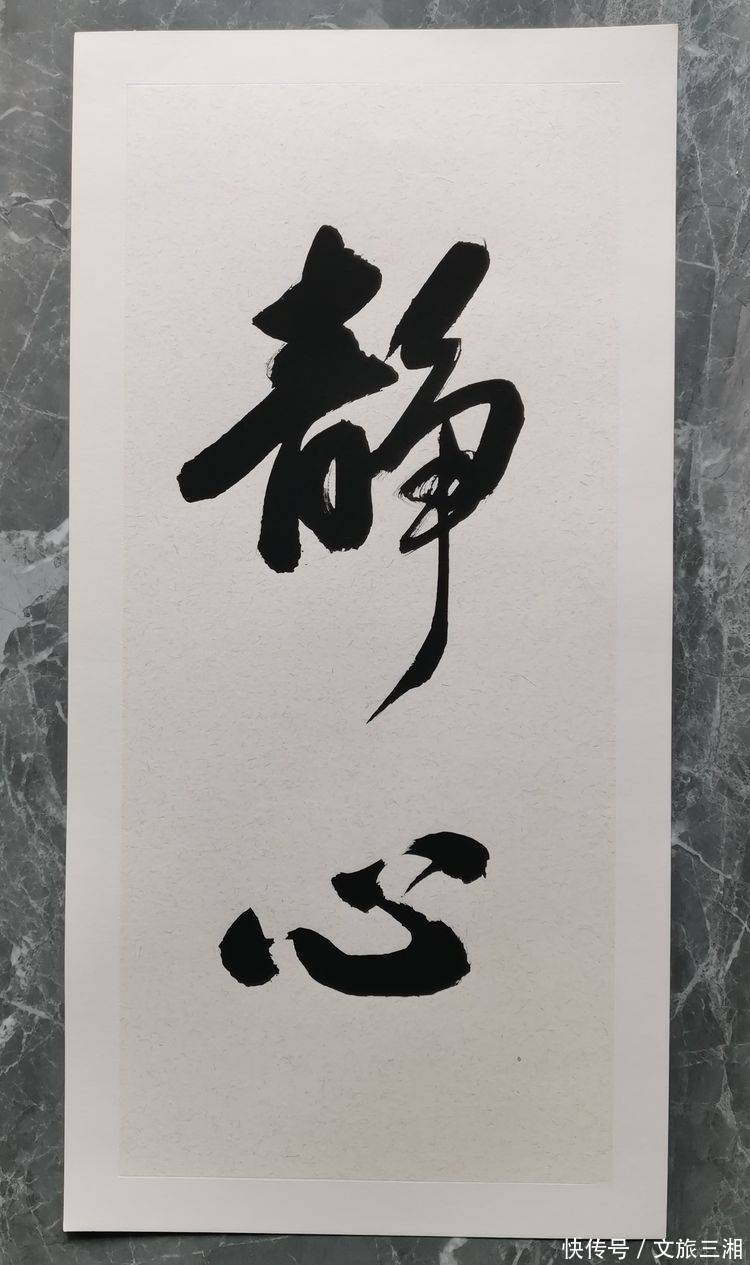 静心
快传号/文旅三湘